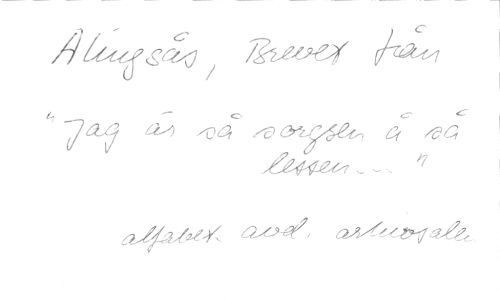 Alingsås, Brevet från
"Jag är så sorgsen å så
lessen... "
alfabet. avd. arkivsalen